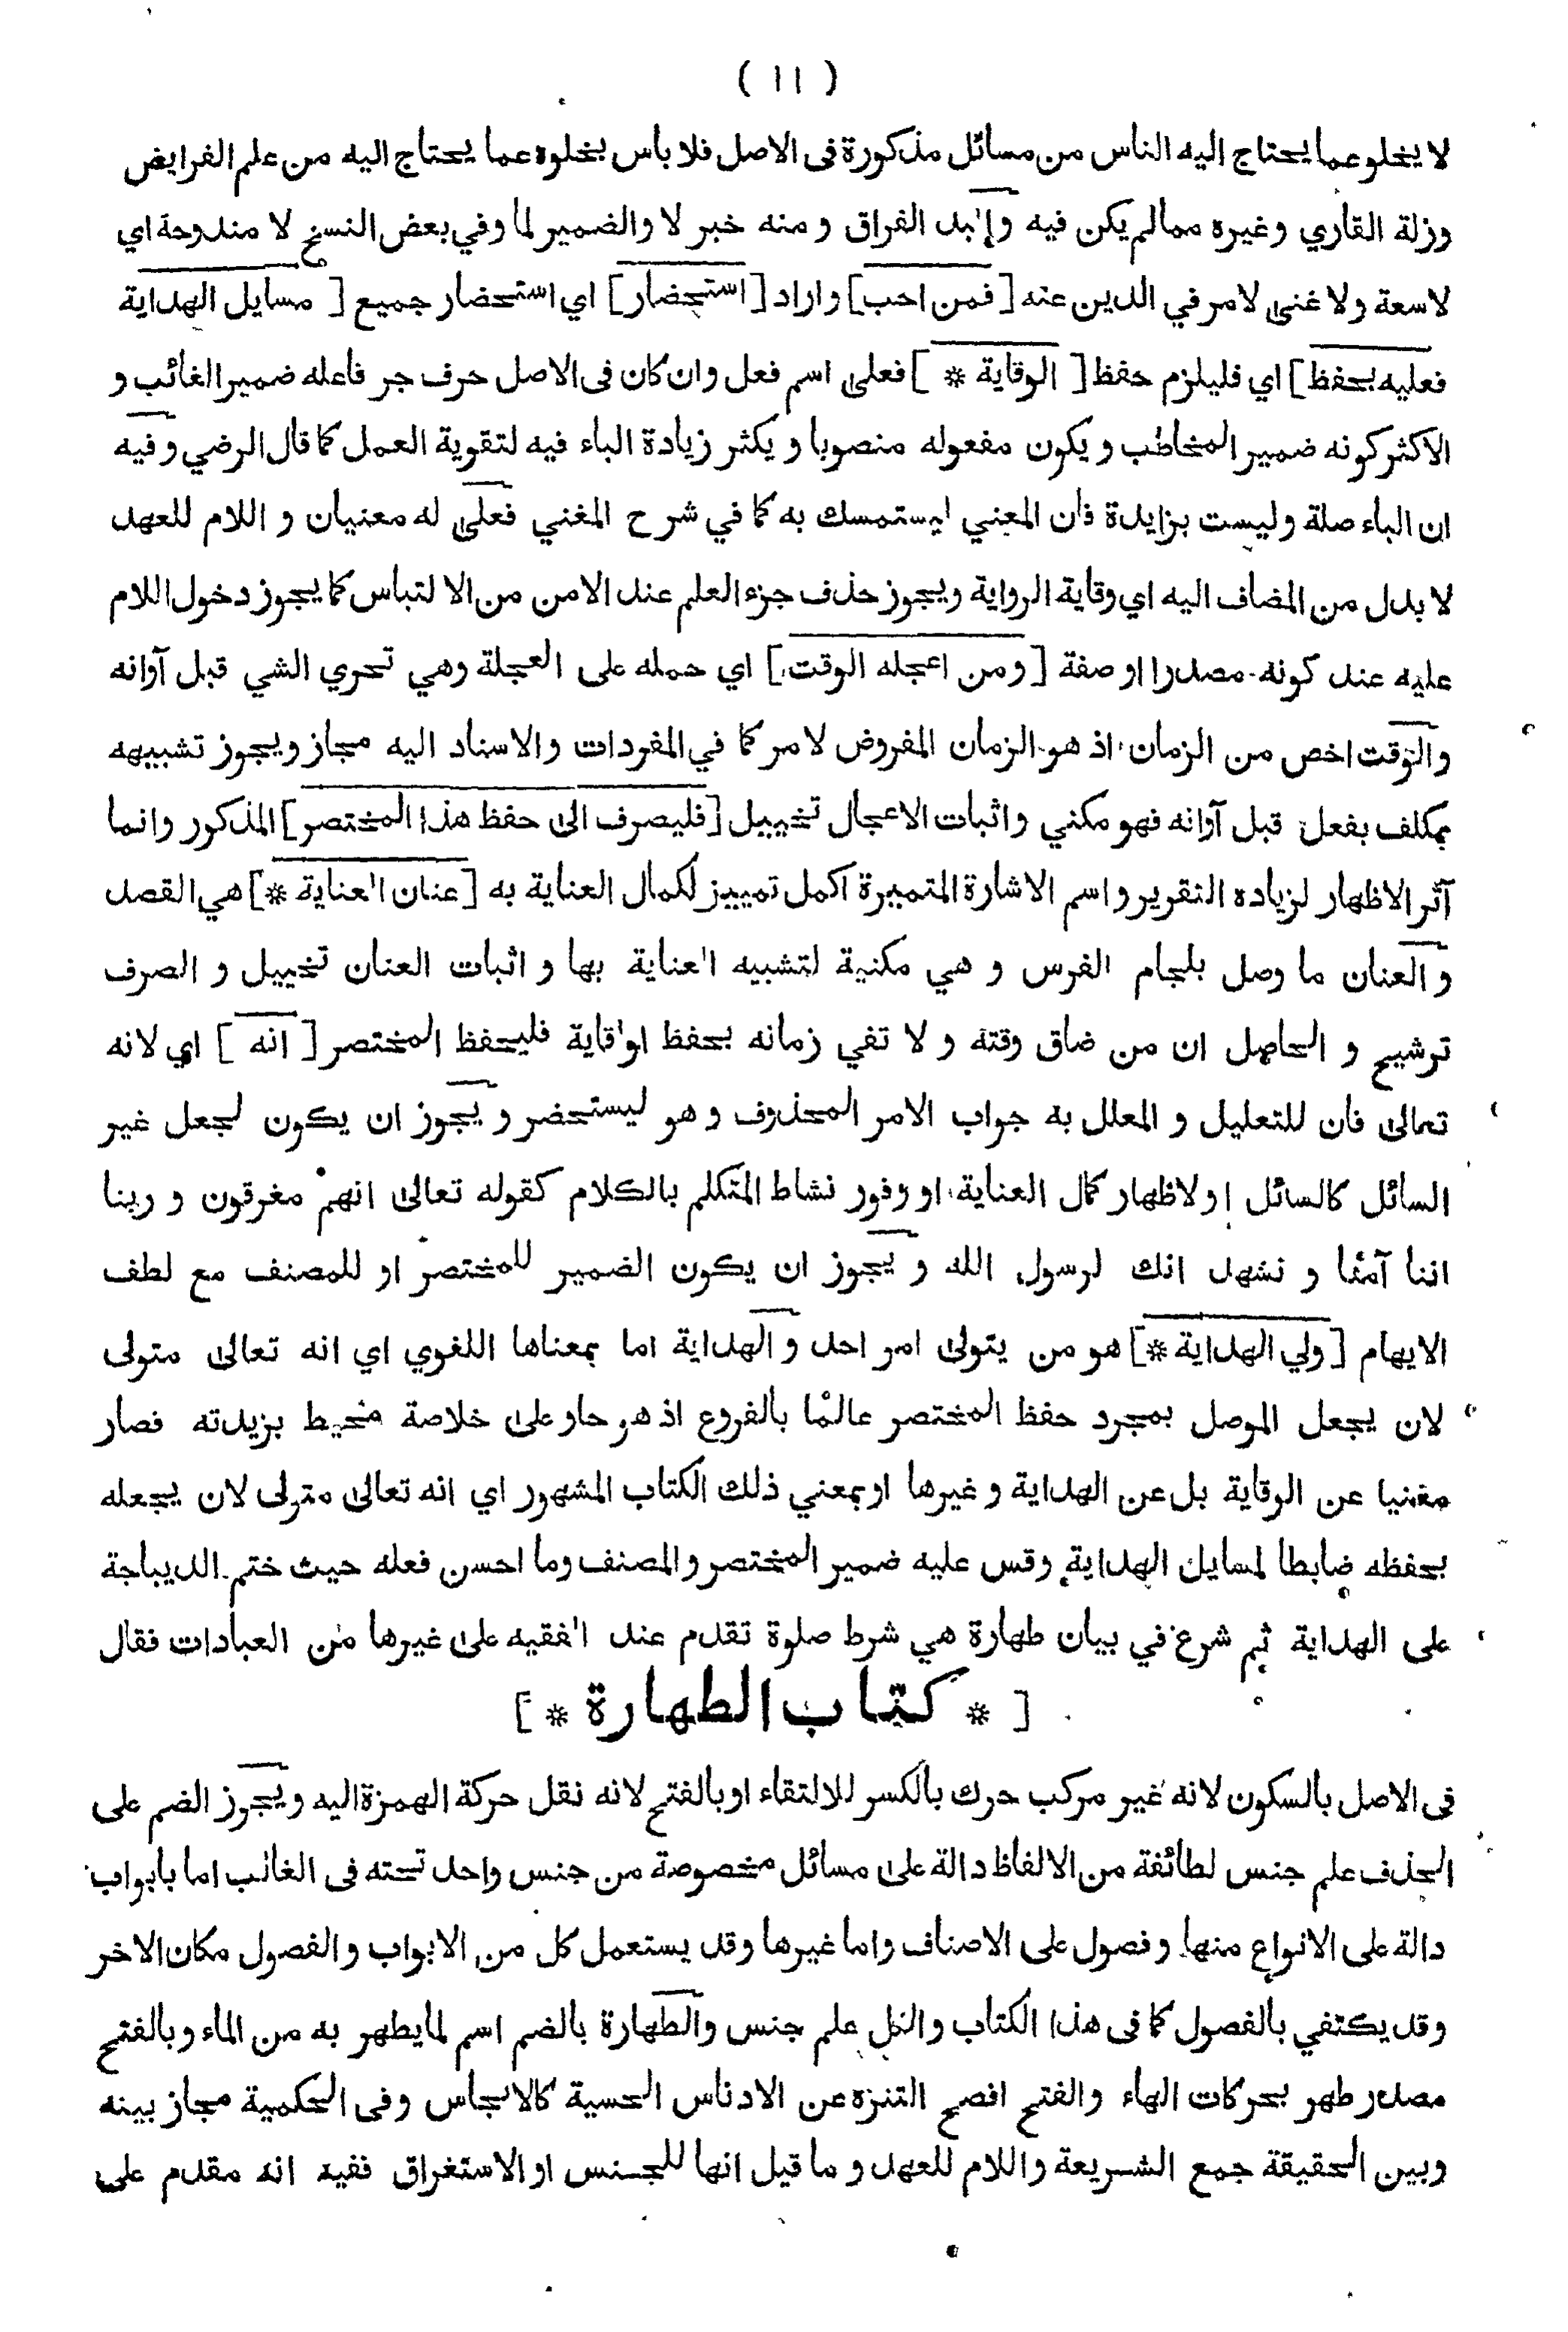 ( ١١ )
لا يخلو عما يحتاج اليه الناس من مسائل مذكورة فى الاصل فلا باس بخلوه عما يحتاج اليه من علم الفرايض
وزلة القاري وغيره ممالم يكن فيه والبد الفراق و منه خبر لا والضمير لما وفي بعض النسخ لا مندوحة اي
لاسعة ولا غنى لامر في الدين عنه [ فمن احب ] واراد [ استحضار ] اي استحضار جميع [ مسايل الهداية
فعليه بحفظ ] اي فليلزم حفظ [ الوقاية * ] فعلى اسم فعل وان كان فى الاصل حرف جر فاعله ضمير الغائب و
الاكثر كونه ضمير المخاطب و يكون مفعوله منصوبا و يكثر زيادة الباء فيه لتقوية العمل كما قال الرضي و فيه
ان الباء صلة وليست بزايدة فان المعني ليستمسك به كما في شرح المغني فعلى له معنيان و اللام للعهد
لا بدل من المضاف اليه اي وقاية الرواية ويجوز حذف جزء العلم عند الامن من الالتباس كما يجوز دخول اللام
عليه عند كونه مصدرا او صفة [ ومن اعجله الوقت ] اي حمله على العجلة وهي تحري الشي قبل آوانه
والوقت اخص من الزمان اذ هو الزمان المفروض لامر كما في المفردات والاسناد اليه مجاز ويجوز تشبيهه
بمكلف بفعل قبل آوانه فهو مكني واثبات الاعجال تخييل [ فليصرف الى حفظ هذا المختصر ] المذكور وانما
آثر الاظهار لزيادة التقرير و اسم الاشارة المتميزة اكمل تمييز لكمال العناية به [ عنان العناية * ] هي القصد
و العنان ما وصل بلجام الفرس و هي مكنية لتشبيه العناية بها و اثبات العنان تخييل و الصرف
ترشيح و الحاصل ان من ضاق وقته و لا تفي زمانه بحفظ الوقاية فليحفظ المختصر [ انه ] اي لانه
تعالى فان للتعليل و المعلل به جواب الامر المحذوف و هو ليستحضر و يجوز ان يكون لجعل غير
السائل كالسائل او لاظهار كمال العناية او وفور نشاط المتكلم بالكلام كقوله تعالى انهم مغرقون و ربنا
اننا آمنا و نشهد انك لرسول الله و يجوز ان يكون الضمير للمختصر او للمصنف مع لطف
الايهام [ ولي الهداية * ] هو من يتولى امر احد و الهداية اما بمعناها اللغوي اي انه تعالى متولى
لان يجعل الموصل بمجرد حفظ المختصر عالما بالفروع اذ هو حاو على خلاصة محيط بزبدته فصار
مغنيا عن الوقاية بل عن الهداية و غيرها او بمعني ذلك الكتاب المشهور اي انه تعالى متولى لان يجعله
بحفظه ضابطا لمسايل الهداية وقس عليه ضمير المختصر و المصنف وما احسن فعله حيث ختم الديباجة
على الهداية ثم شرع في بيان طهارة هي شرط صلوة تقدم عند الفقيه على غيرها من العبادات فقال
[ * كتاب الطهارة * ]
فى الاصل بالسكون لانه غير مركب حرك بالكسر للالتقاء او بالفتح لانه نقل حركة الهمزة اليه و يجوز الضم على
الحذف علم جنس لطائفة من الالفاظ دالة على مسائل مخصوصة من جنس واحد تحته فى الغالب اما بابواب
دالة على الانواع منها و فصول على الاصناف واما غيرها وقد يستعمل كل من الابواب و الفصول مكان الاخر
وقد يكتفي بالفصول كما فى هذا الكتاب والكل علم جنس والطهارة بالضم اسم لما يطهر به من الماء و بالفتح
مصدر طهر بحركات الهاء والفتح افصح التنزه عن الادناس الحسية كالانجاس وفى الحكمية مجاز بينه
وبين الحقيقة جمع الشريعة واللام للعهد و ما قيل انها للجنس او الاستغراق ففيه انه مقدم على